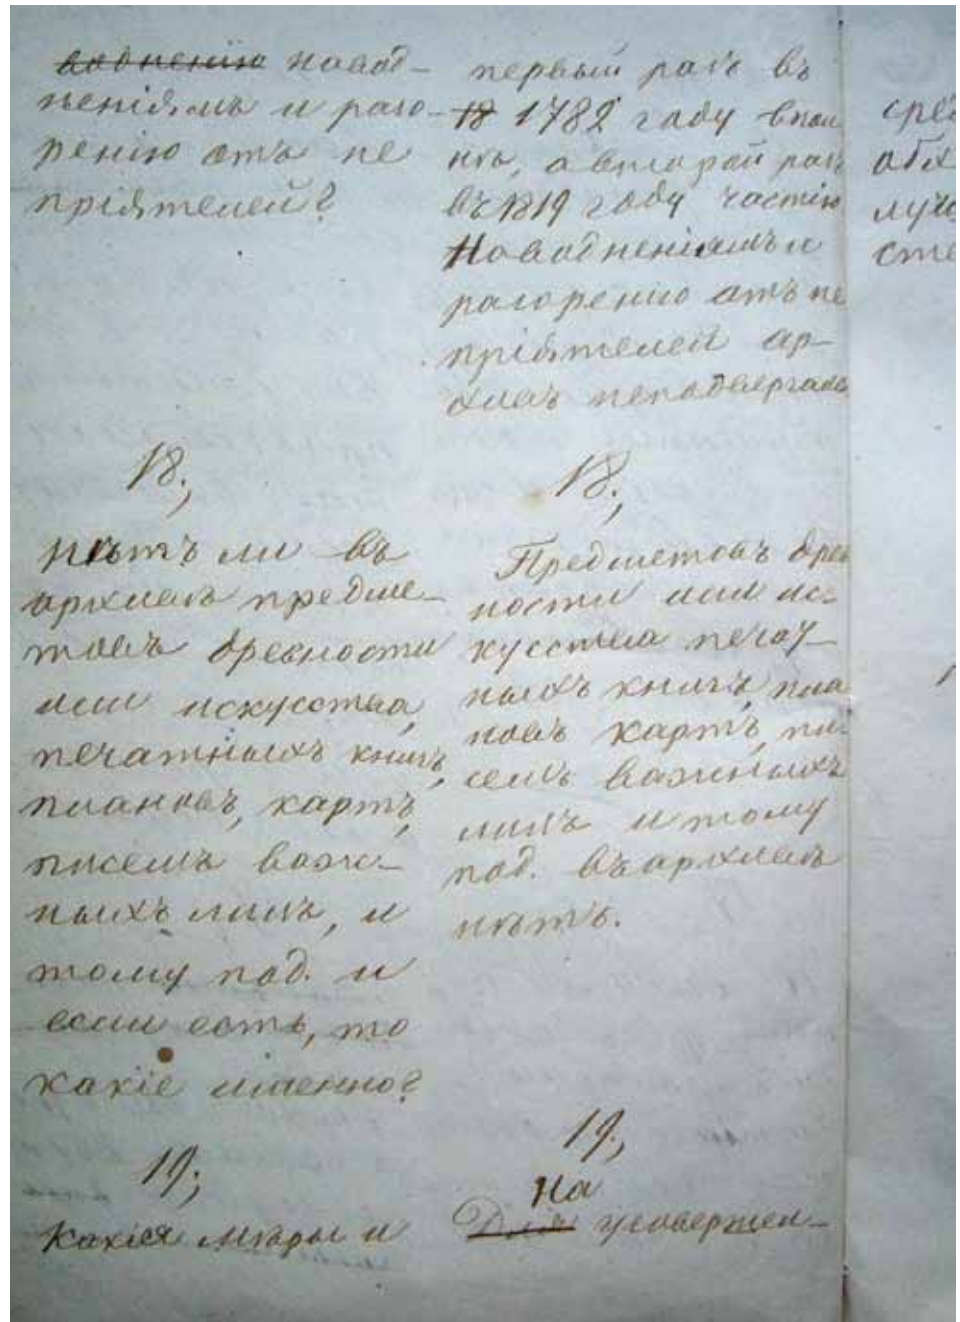 воднению навод-
неніямъ и разо-
ренію отъ не
пріятелей?
18.,
Нѣтъ ли въ
архивѣ предме-
товъ древности
или искусства,
печатныхъ книгъ,
плановъ, картъ,
писемъ важ-
ныхъ лицъ, и
тому под. и
если есть, то
какіе именно?
19.,
Какія мѣры и
первый разъ въ
18 1782 году впол
нѣ, а второй разъ
въ 1819 году частію
Наводненіямъ и
разоренію отъ не
пріятелей ар-
хивъ неподвергался
18.,
Предметовъ древ
ности или ис-
кусства печат-
ныхъ книгъ, пла
новъ картъ, пи-
семъ важныхъ
лицъ и тому
под. въ архивѣ
нѣтъ.
19.,
На
Для усовершен-
сред
лучш